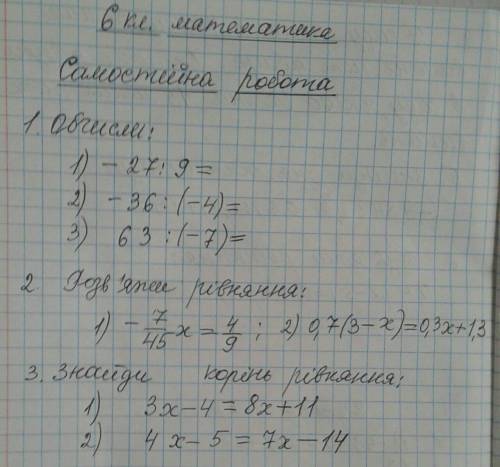 6 кл. математика
Самостійна робота
1. Обчисли:
1) - 27 : 9 =
2) - 36 : (-4) =
3) 63 : (-7) =
2. Розв'яжи рівняння:
1) - 7/45 x = 4/9 ; 2) 0,7(3-x)=0,3x+1,3
3. Знайди корінь рівняння:
1) 3x-4 = 8x+11
2) 4x-5 = 7x-14